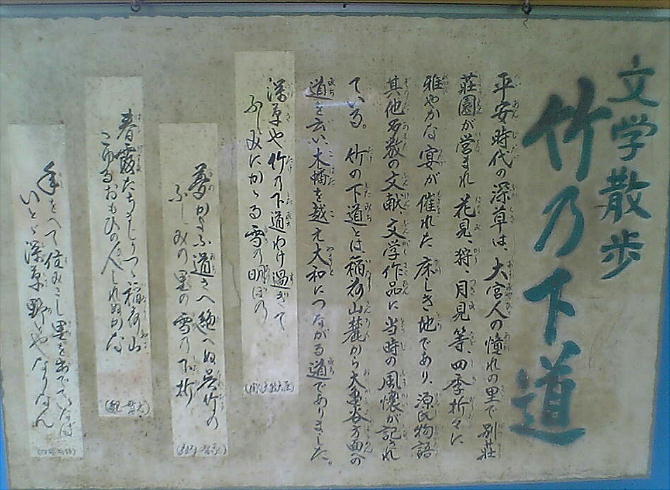 文学散歩
竹乃下道
平安時代の深草は、大宮人の憧れの里で別荘
荘園が営まれ花見、狩、月見等、四季折々に
雅やかな宴が催れた床しき地であり、源氏物語
其他多数の文献、文学作品に当時の風懐が記され
ている。竹の下道とは稲荷山麓から大亀谷方面への
道を云い、木幡を越え大和につながる道でありました。
深草や竹の下道わけ過ぎて
ふしみにかゝる雪の明ぼの
夢かよふ道さへ絶へぬ呉竹の
ふしみの里の雪の下折
春霞たちまじりつゝ稲荷山
こゆるおもひの人しれぬかな
年をへて住みこし里を出でていなば
いとゞ深草野とやなりなん